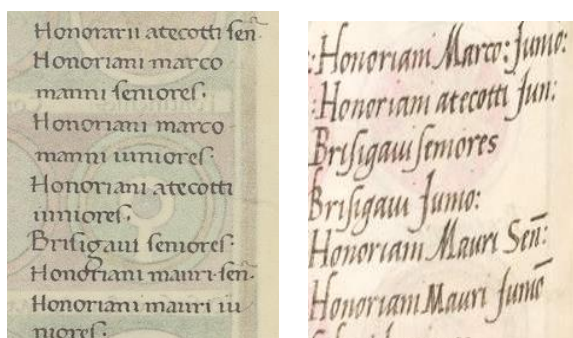 Honorarii atecotti sen̄·
Honoriani marco
manni seniores·
Honoriani marco
manni iuniores·
Honoriani atecotti
iuniores·
Brisigaui seniores·
Honoriani mauri·sen̄·
Honoriani mauri iu
niores·
:Honoriani Marco: Junio:
:Honoriani atecotti Jun:
Brisigaui seniores
Brisigaui Junio:
Honoriani Mauri Sen̄:
Honoriani Mauri Junio̅